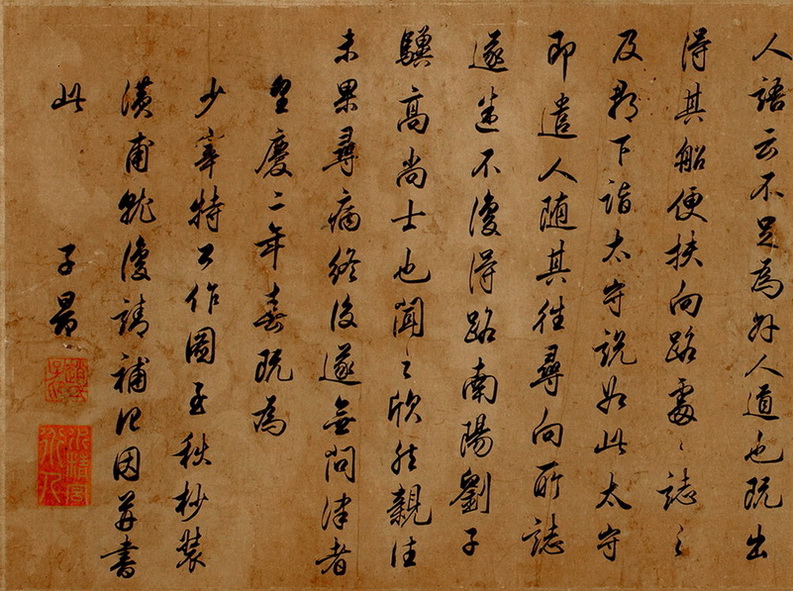 人語云不足為外人道也既出
得其船便扶向路處〻誌之
及郡下詣太守説如此太守
即遣人随其往尋向所誌
遂迷不復得路南陽劉子
驥高尚士也聞之欣然親往
未果尋病終後遂無問津者
皇慶二年春既為
少宰特公作圖至秋杪裝
潢甫就復請補記因并書
此
子昂
趙氏子昂
水精宮道人